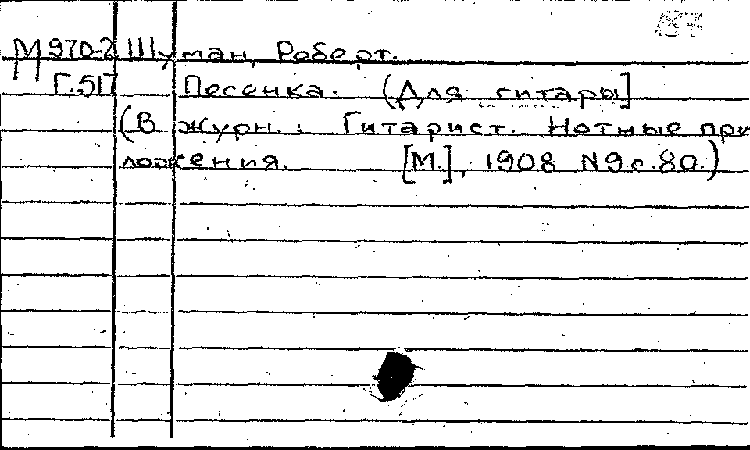 М970-2 Шуман, Роберт.
Г.517 Песенка. (Для гитары]
(В журн.: Гитарист. Нотные при
ложения. [М.], 1908 N9 с.80.)